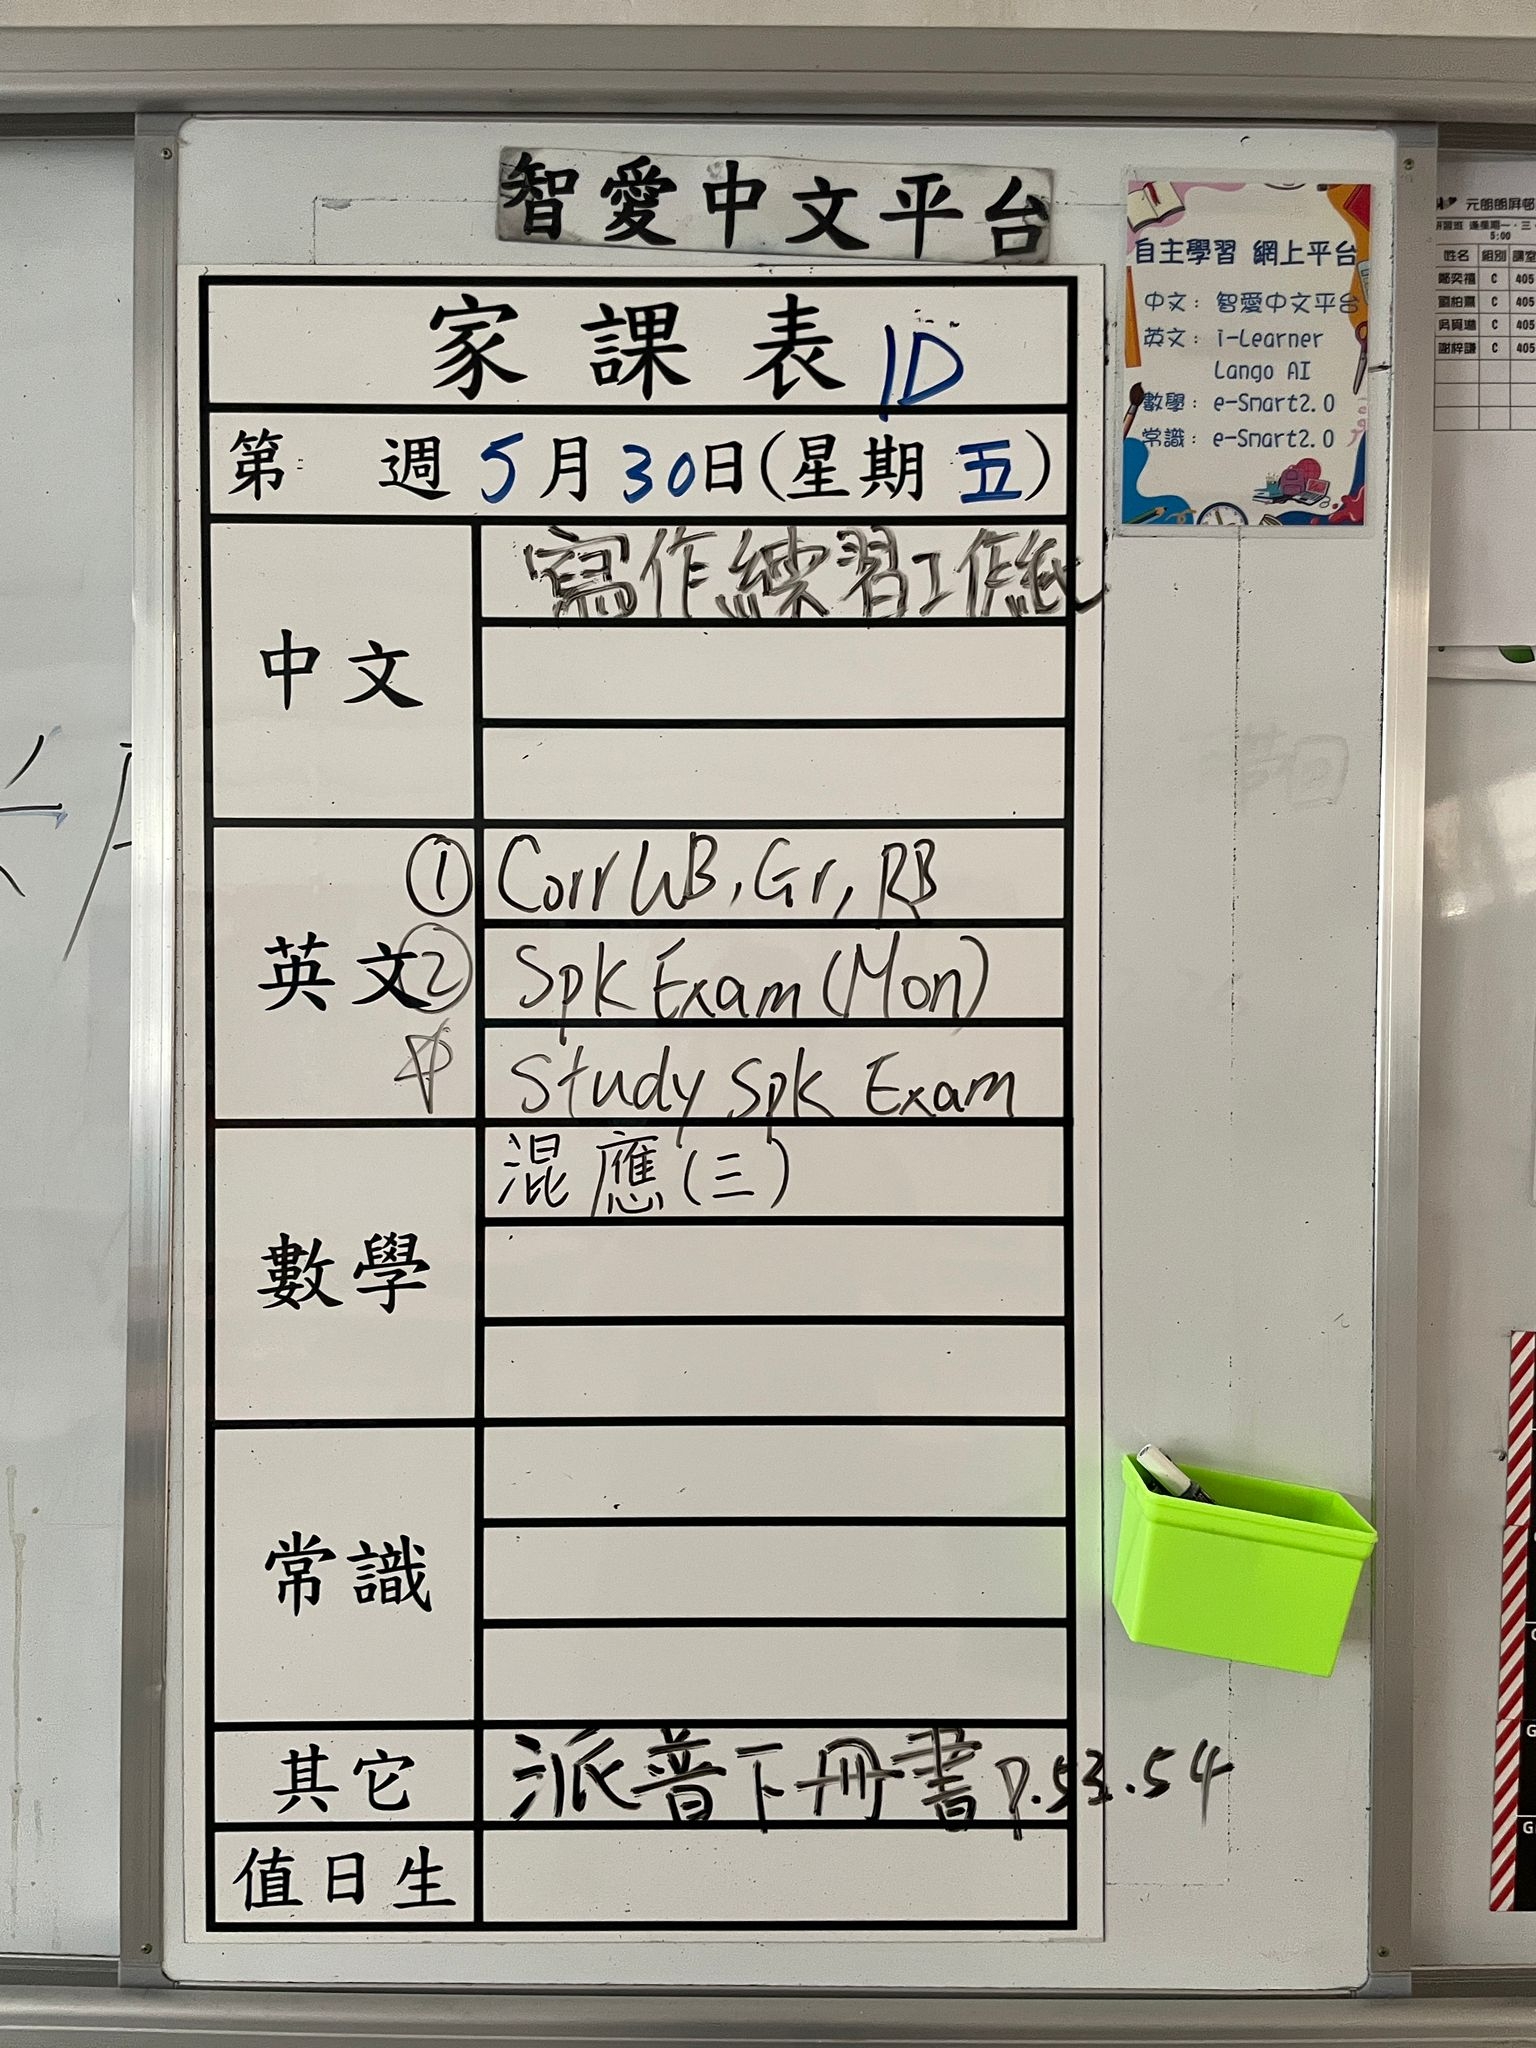 智愛中文平台
家課表 1D
第 週 5月30日(星期五)
中文
寫作練習工作紙
英文
① Corr WB, Gr, RB
② Spk Exam (Mon)
☆ Study Spk Exam
數學
混應(三)
常識
其它
派普下冊書 p.53.54
值日生
自主學習 網上平台
中文：智愛中文平台
英文：i-Learner
Lango AI
數學：e-Smart2.0
常識：e-Smart2.0
元朗朗屏邨
逢星期一、三、
5:00
姓名 組別 課室
C 405
C 405
C 405
C 405